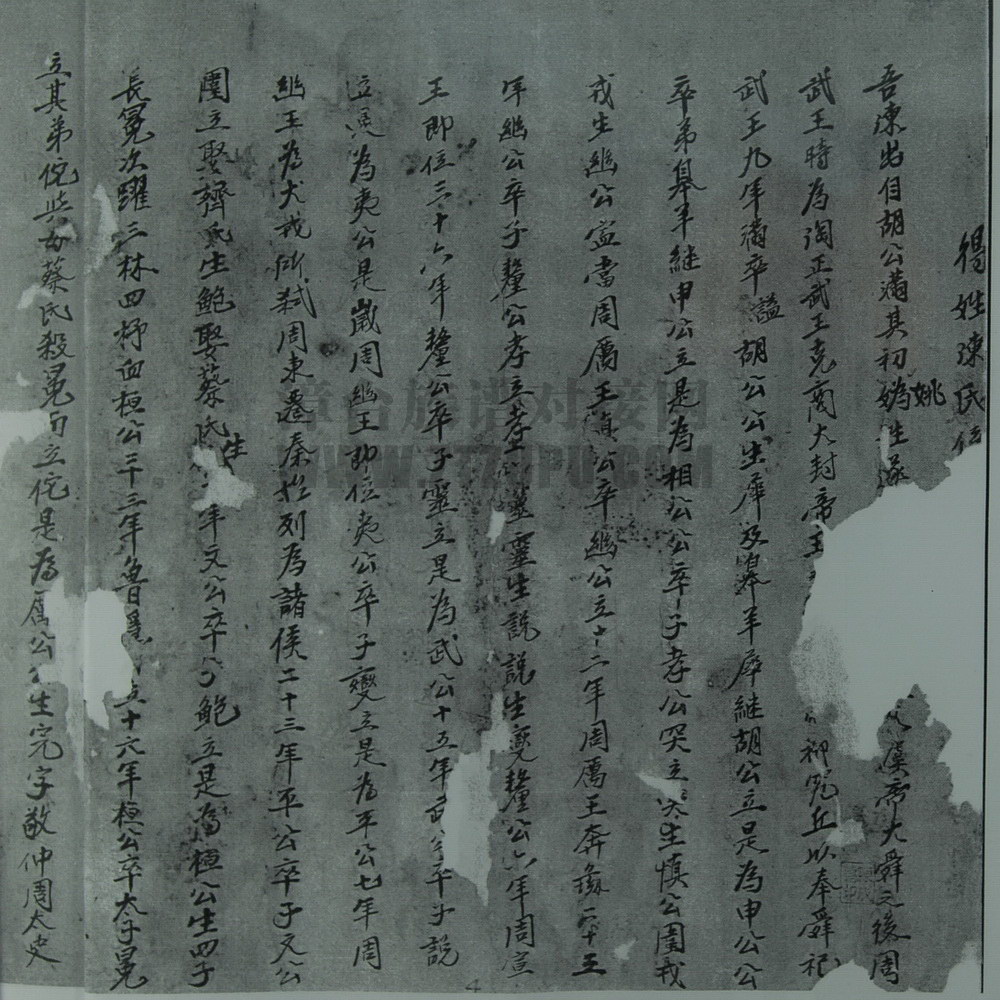 得姓陳氏
吾陳出自胡公滿其初媯姚姓 虞帝大舜之後周
武王時為陶正武王克商大封帝王 宛丘以奉舜祀
武王九年滿卒謚胡公公生犀及皋羊犀継胡公立是為申公公
卒弟皋羊継申公立是為相公公卒子孝公突立 生慎公圉戎
戎生幽公寧當周厲王慎公卒幽公立十二年周厲王奔彘二十五
年幽公卒子釐公孝立孝生靈靈生説説生燮釐公六年周宣
王即位三十六年釐公卒子靈立是為武公十五年武公卒子説
立是為夷公是歲周幽王即位夷公卒子燮立是為平公七年周
幽王為犬戎所弒周東遷秦 列為諸侯二十三年平公卒子文公
圉立娶 氏生鮑娶蔡氏生 年文公卒 子鮑立是為桓公生四子
長冕次躍三林四杵臼桓公三十三年魯 立十六年桓公卒太子冕
立其弟佗 母蔡氏殺冕而立佗是為厲公 生完字敬仲周太史
章台族谱对接网
4